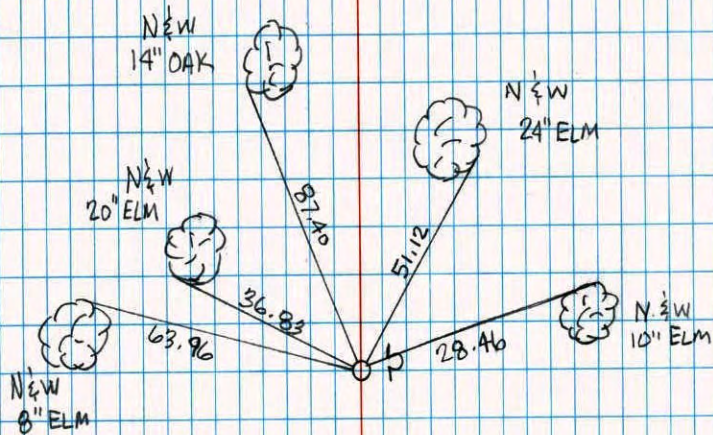 N & W
14" OAK
N & W
24" ELM
N & W
20" ELM
87.40
51.12
36.83
63.96
28.46
N & W
10" ELM
N & W
8" ELM